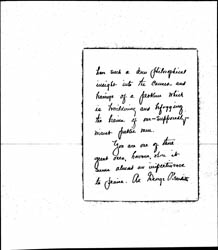 has such a deep philosophical
insight into the causes and
bearings of a problem which
is bewildering and befogging
the brains of our supposedly-
great public men.
You are one of those
great ones, however, whom it
seems almost an impertinence
to praise. As George